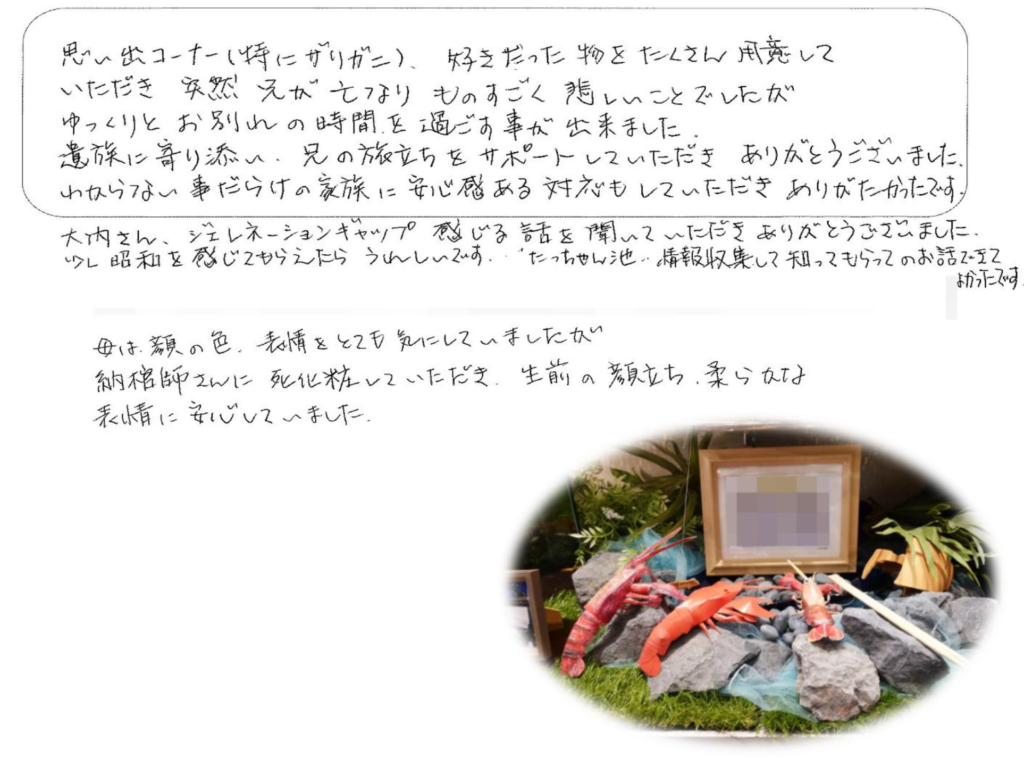 思い出コーナー(特にザリガニ)、好きだった物をたくさん用意して
いただき 突然 兄が 亡くなり ものすごく 悲しいことでしたが
ゆっくりと お別れの時間を過ごす事が出来ました。
遺族に寄り添い、兄の旅立ちをサポートしていただき ありがとうございました。
わからない事だらけの家族に安心感ある対応もしていただき ありがたかったです。
大内さん、ジェレネーションギャップ 感じる話を聞いていただきありがとうございました。
少し昭和を感じてもらえたら うれしいです。“たっちゃん池” 情報収集して知ってもらってのお話できて
よかったです。
母は顔の色、表情をとても気にしていましたが
納棺師さんに 死化粧していただき、生前の顔立ち、柔らかな
表情に安心していました。